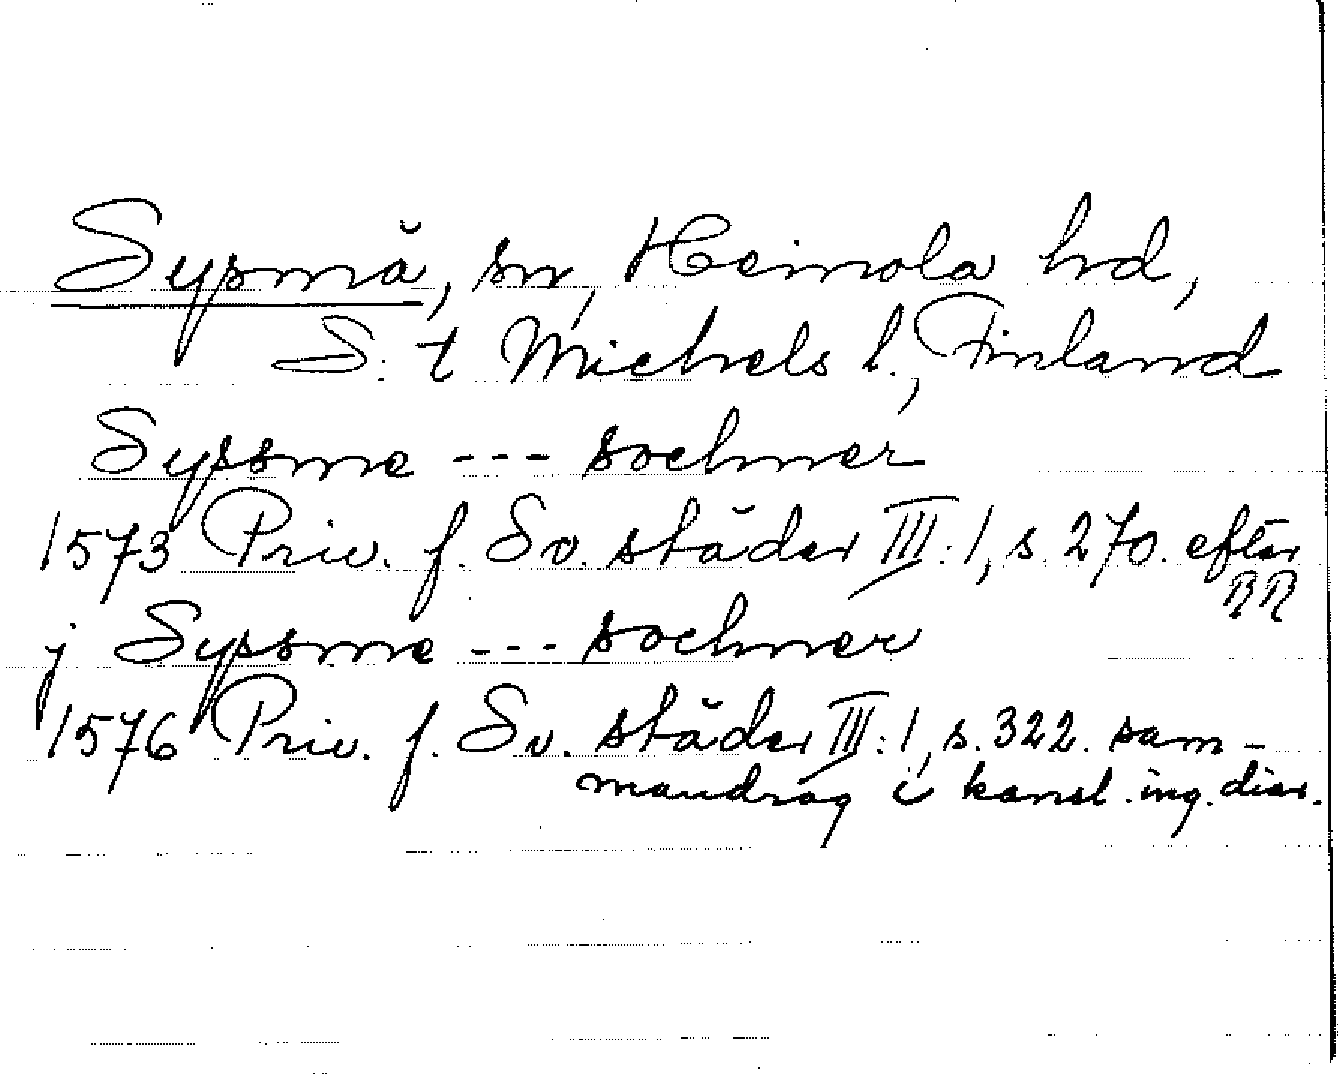 Sysmä, sn, Heinola hd,
S:t Michels l., Finland
Syssme --- sochner
1573 Priv. f. Sv. städer III:1, s. 270. efter
RR
j Syssme --- sochner
1576 Priv. f. Sv. städer III:1, s. 322. sam-
mandrag i kansl. ing. diar.